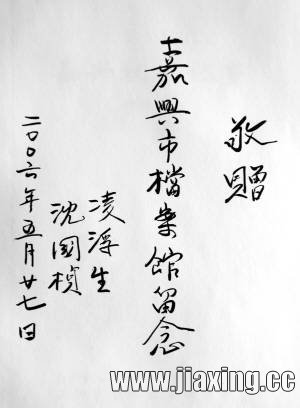 敬贈
嘉興市檔案館留念
凌浮生
沈國楨
二〇〇六年五月廿七日
www.jiaxing.cc